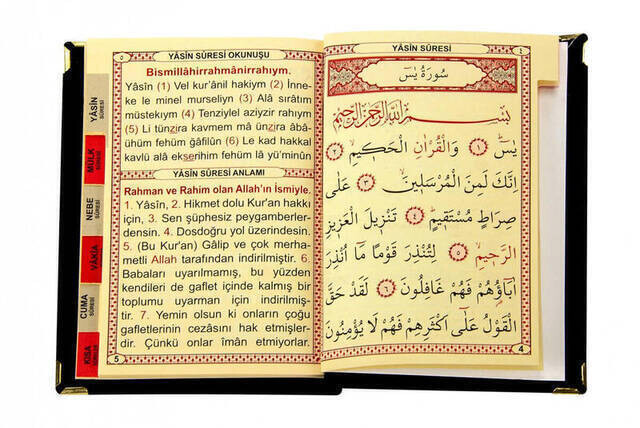 YÂSİN SÛRESİ
٤
سُورَةُ يٰسٓ
بِسْمِ اللّٰهِ الرَّحْمٰنِ الرَّحِيمِ
يٰسٓ ﴿١﴾ وَالْقُرْاٰنِ الْحَكِيمِ ﴿٢﴾
اِنَّكَ لَمِنَ الْمُرْسَلِينَ ﴿٣﴾ عَلٰى
صِرَاطٍ مُسْتَقِيمٍ ﴿٤﴾ تَنْزِيلَ الْعَزِيزِ
الرَّحِيمِ ﴿٥﴾ لِتُنْذِرَ قَوْمًا مَٓا اُنْذِرَ
اٰبَٓاؤُ۬هُمْ فَهُمْ غَافِلُونَ ﴿٦﴾ لَقَدْ حَقَّ
الْقَوْلُ عَلٰٓى اَكْثَرِهِمْ فَهُمْ لَا يُؤْمِنُونَ
4
٥
YÂSİN SÛRESİ OKUNUŞU
Bismillâhirrahmânirrahıym.
Yâsîn (1) Vel kur'ânil hakiym (2) İnne-
ke le minel murseliyn (3) Alâ sırâtım
müstekıym (4) Tenziylel aziyzir rahıym
(5) Li tünzira kavmem mâ ünzira âbâ-
ühüm fehüm ğâfilûn (6) Le kad hakkal
kavlü alâ ekserihim fehüm lâ yü'minûn
YÂSİN SÛRESİ ANLAMI
Rahman ve Rahim olan Allah'ın İsmiyle.
1. Yâsîn, 2. Hikmet dolu Kur'an hakkı
için, 3. Sen şüphesiz peygamberler-
densin. 4. Dosdoğru yol üzerindesin.
5. (Bu Kur'an) Gâlip ve çok merha-
metli Allah tarafından indirilmiştir. 6.
Babaları uyarılmamış, bu yüzden
kendileri de gaflet içinde kalmış bir
toplumu uyarman için indirilmiş-
tir. 7. Yemin olsun ki onların çoğu
gafletlerinin cezâsını hak etmişler-
dir. Çünkü onlar îmân etmiyorlar.
5
YÂSİN
SÛRESİ
MÜLK
SÛRESİ
NEBE
SÛRESİ
VÂKIA
CUMA
SÛRESİ
KISA
SÛRELER